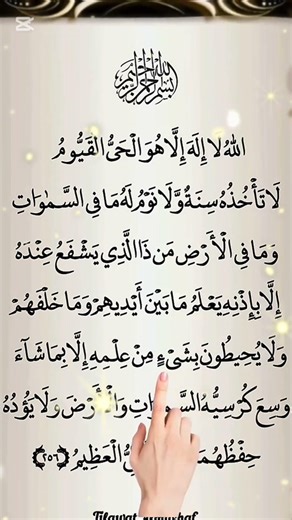 بسم الله الرحمن الرحيم
اَللهُ لَا إِلَهَ إِلَّا هُوَ الْحَيُّ الْقَيُّومُ
لَا تَأْخُذُهُ سِنَةٌ وَّلَا نَوْمٌ لَهُ مَا فِي السَّمٰوَاتِ
وَمَا فِي الْأَرْضِ مَن ذَا الَّذِي يَشْفَعُ عِنْدَهُ
إِلَّا بِإِذْنِهِ يَعْلَمُ مَا بَيْنَ أَيْدِيهِمْ وَمَا خَلْفَهُمْ
وَلَا يُحِيطُونَ بِشَيْءٍ مِنْ عِلْمِهِ إِلَّا بِمَا شَآءَ
وَسِعَ كُرْسِيُّهُ السَّمٰوَاتِ وَالْأَرْضَ وَلَا يَؤُدُهُ
حِفْظُهُمَا الْعَظِيمُ ٢٥٦
Tilawat